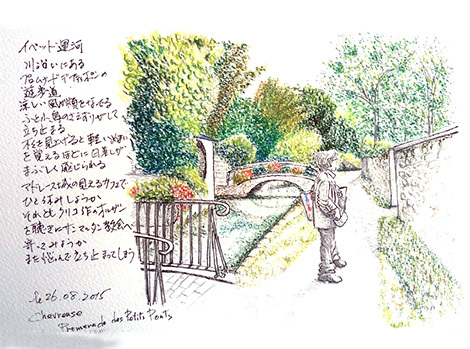 イベット運河
川沿いにある
プロムナード デ プティ ポンの
遊歩道
涼しい風が頬をなでる
ふと小鳥のさえずりがして
立ち止まる
を見上げると軽いめまい
を覚えるほどに日差しが
まぶしく感じられる
マドレーヌ城の見えるカフェで
ひと休みしようか
それとも クリコ作のオルガン
を聴きにサン マルタン教会へ
寄ってみようか
また悩んで立ち止まってしまう
le 26.08.2015
Chevreuse
Promenade des Petits Ponts